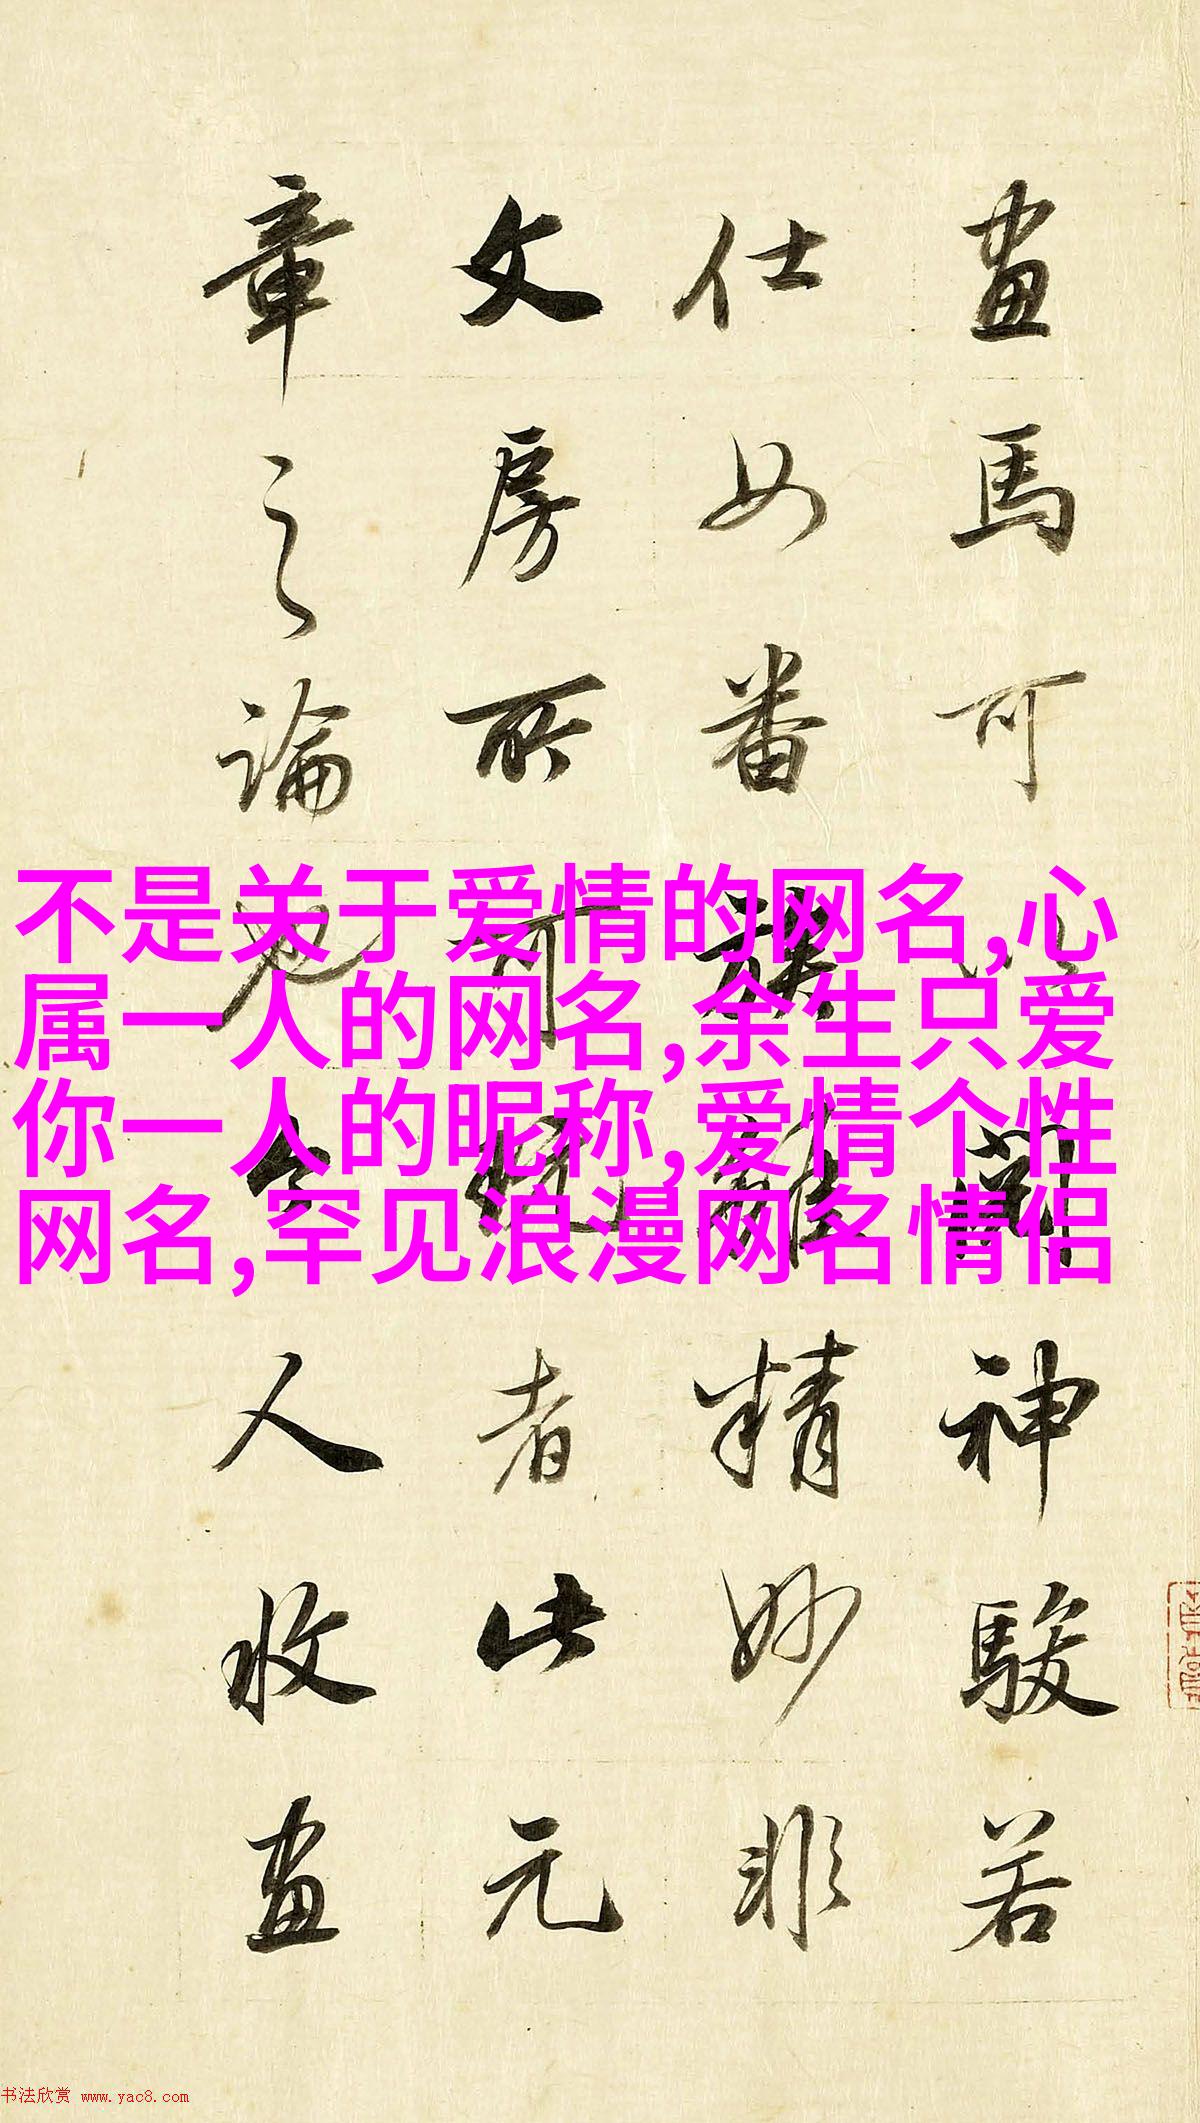 畫馬可以閱神駿若
仕女番族雖精妙非
文房所可玩者此元
章之論也今人收畫
不是关于爱情的网名,心
属一人的网名,余生只爱
你一人的昵称,爱情个性
网名,罕见浪漫网名情侣
书法欣赏 www.yac8.com